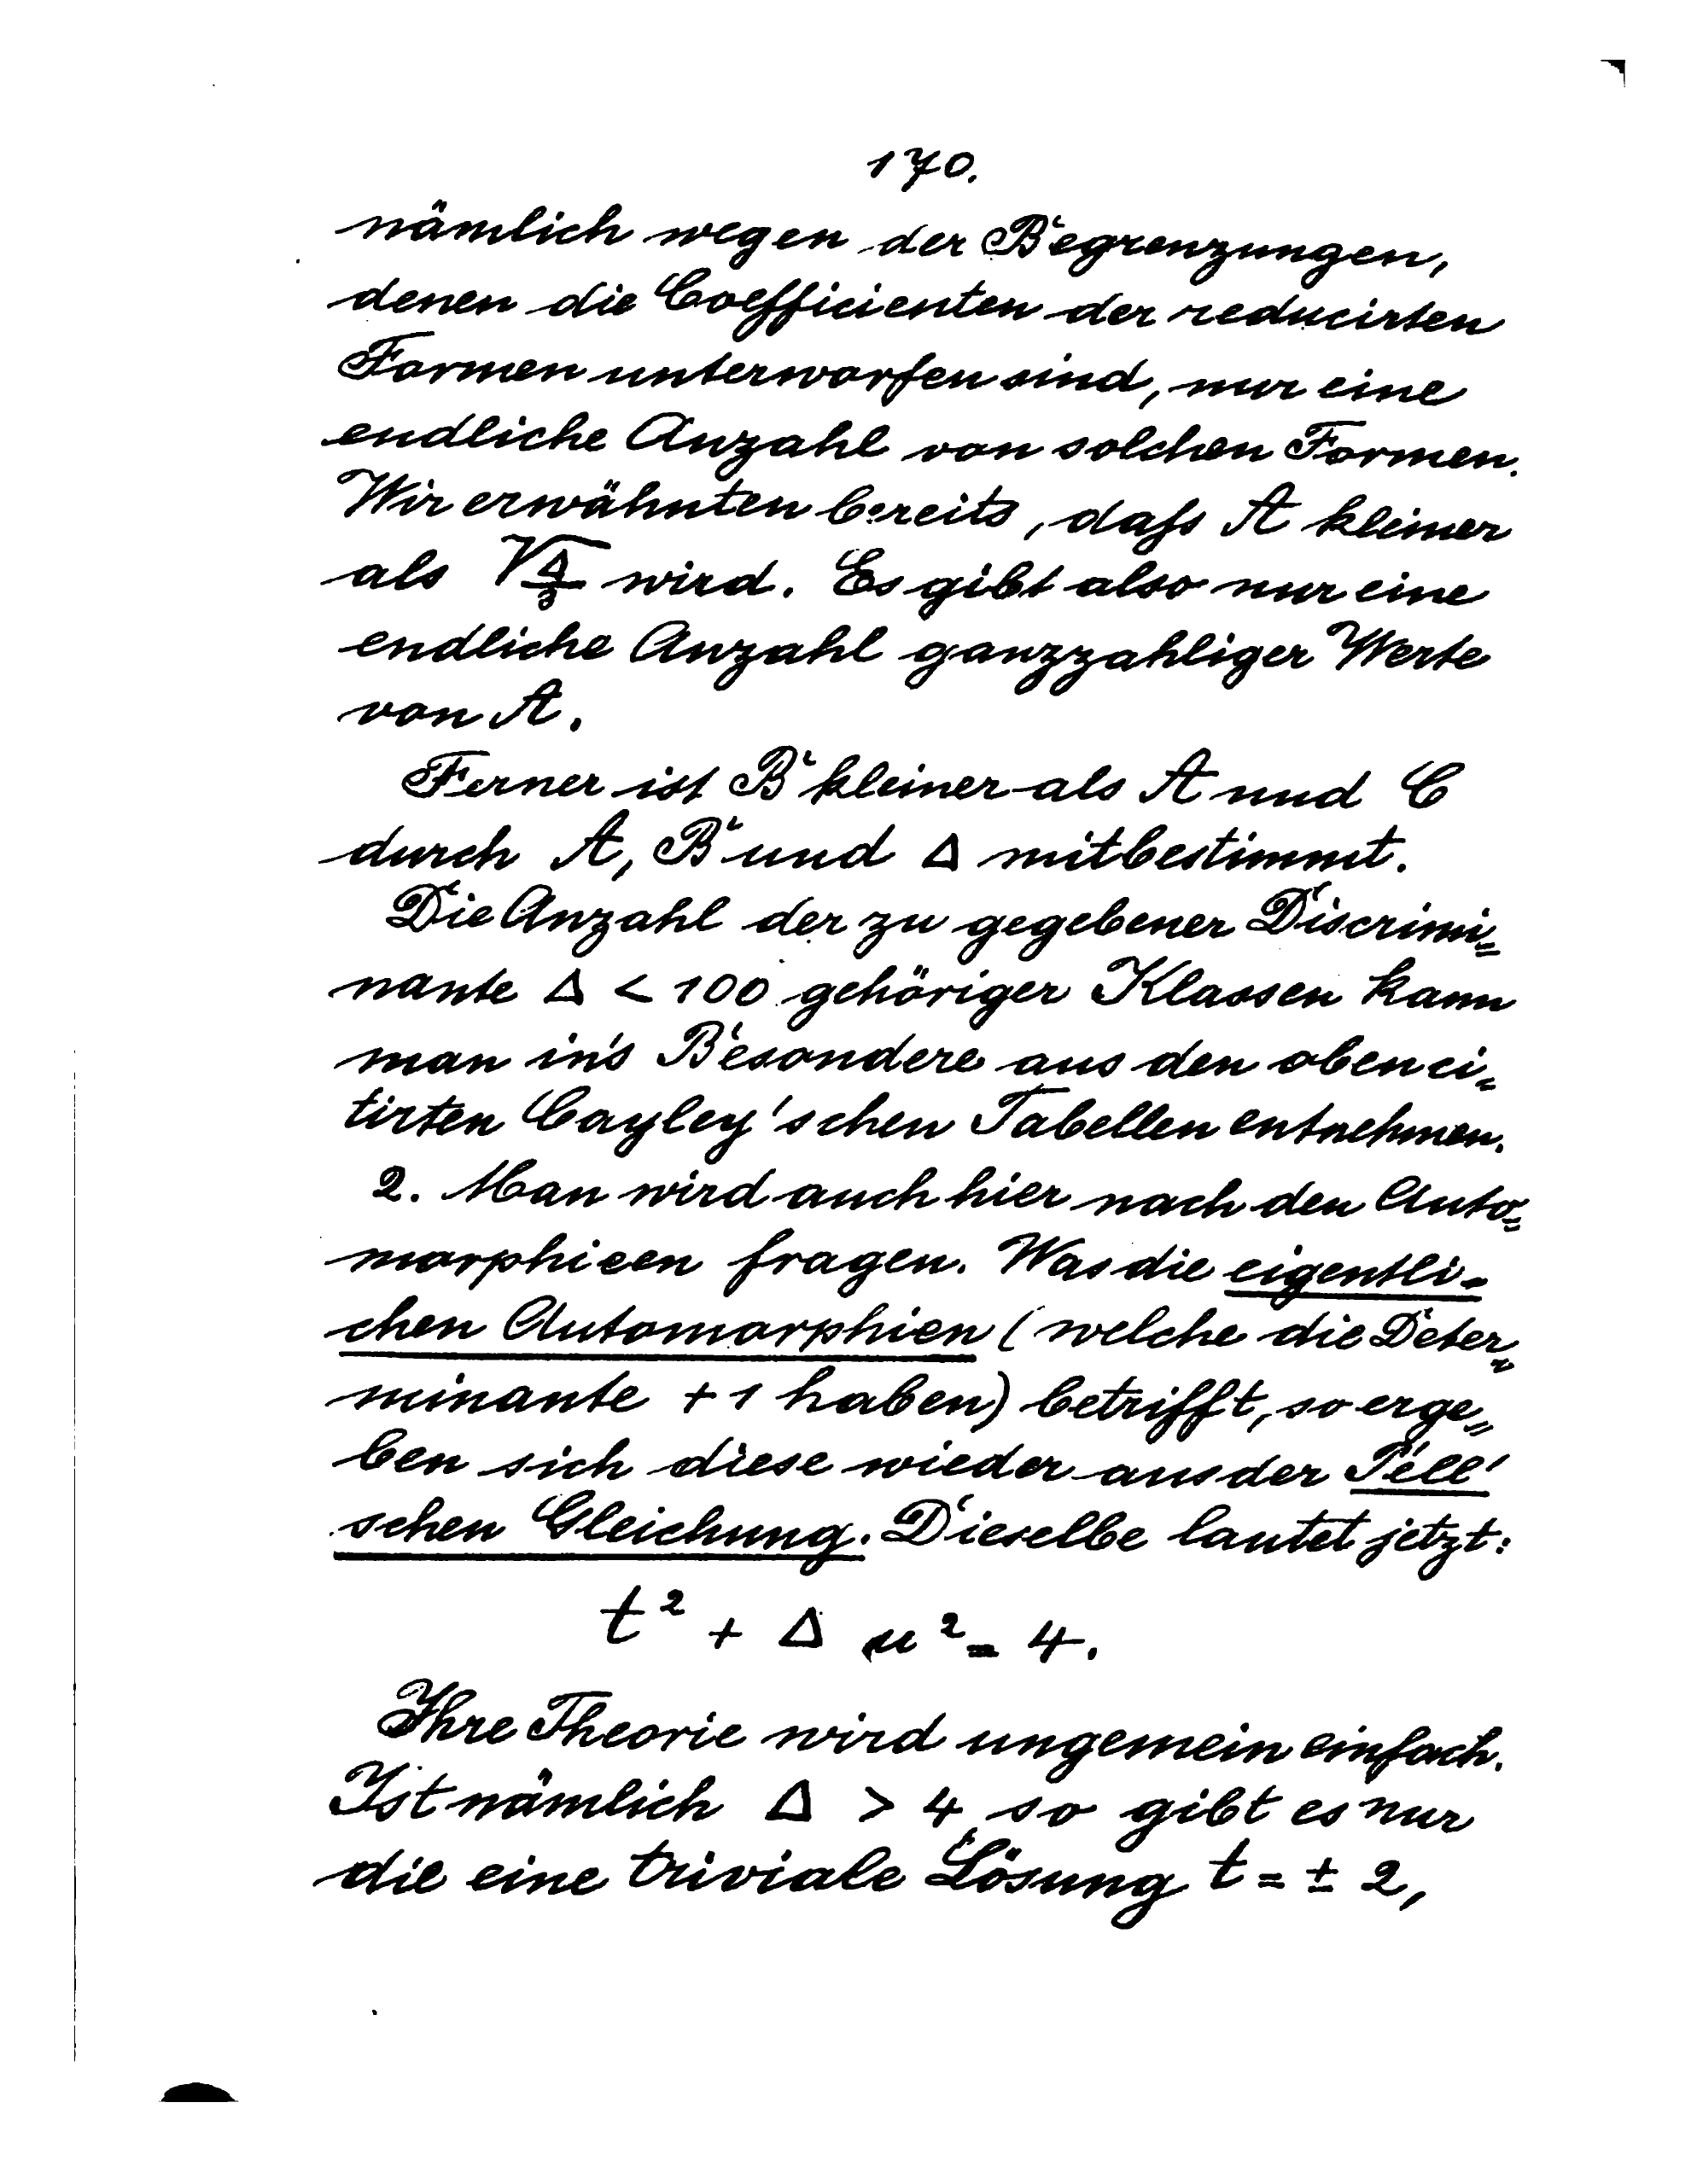 170.
nämlich wegen der Begrenzungen,
denen die Coefficienten der reducirten
Formen unterworfen sind, nur eine
endliche Anzahl von solchen Formen.
Wir erwähnten bereits, daſs A kleiner
als √Δ/3 wird. Es gibt also nur eine
endliche Anzahl ganzzahliger Werte
von A.
Ferner ist B kleiner als A und C
durch A, B und Δ mitbestimmt.
Die Anzahl der zu gegebener Discrimi=
nante Δ < 100 gehöriger Klassen kann
man in's Besondere aus den obenci=
tirten Cayley'schen Tabellen entnehmen.
2. Man wird auch hier nach den Auto=
morphieen fragen. Was die eigentli=
chen Automorphien (welche die Deter=
minante +1 haben) betrifft, so erge=
ben sich diese wieder aus der Pell'
schen Gleichung. Dieselbe lautet jetzt:
t² + Δ u² = 4.
Ihre Theorie wird ungemein einfach.
Ist nämlich Δ > 4, so gibt es nur
die eine triviale Lösung t = ± 2,